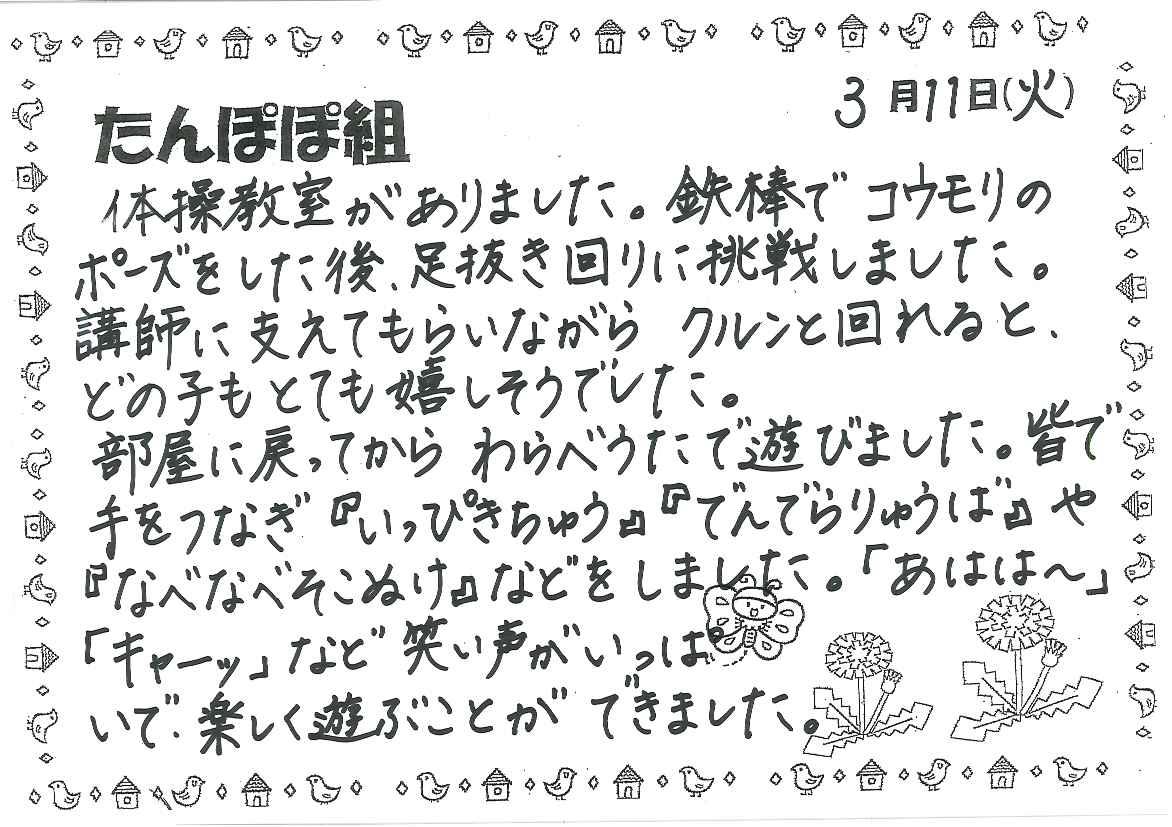 3月11日(火)
たんぽぽ組
体操教室がありました。鉄棒でコウモリの
ポーズをした後、足抜き回りに挑戦しました。
講師に支えてもらいながら クルンと回れると、
どの子もとても嬉しそうでした。
部屋に戻ってから わらべうたで遊びました。皆で
手をつなぎ『いっぴきちゅう』『でんでらりゅうば』や
『なべなべそこぬけ』などをしました。「あはは～」
「キャーッ」など 笑い声がいっぱ
いで、楽しく遊ぶことが できました。